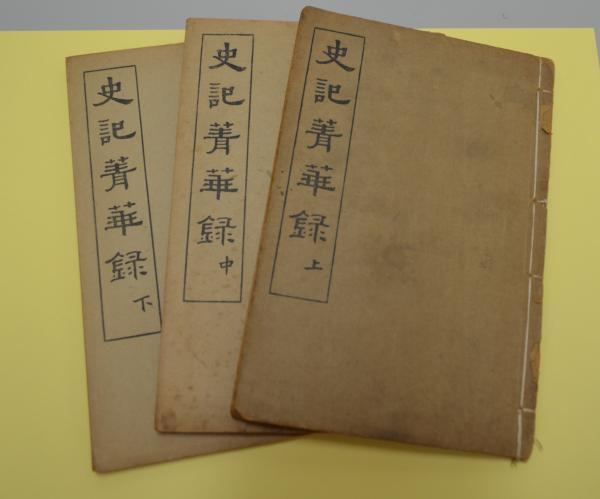 史記菁華録上
史記菁華録中
史記菁華録下